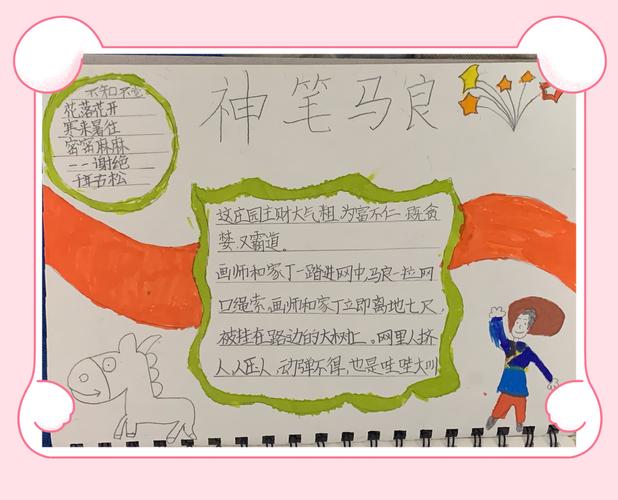 神笔马良
不知不觉
花落花开
寒来暑往
密密麻麻
一一谢绝
千年古松
这庄园主财大气粗,为富不仁,既贪
婪,又霸道。
画师和家丁一踏进网中,马良一拉网
口绳索,画师和家丁立即离地七尺,
被挂在路边的大树上。网里人挤
人,人压人,动弹不得,也是哇哇大叫